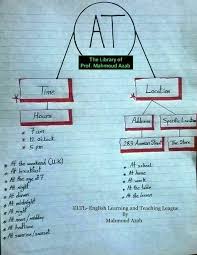 AT
The Library of
Prof. Mahmoud Azab
Time
Location
Hours
Address
Specific Location
7 am
12 o'clock
5 pm
The Store
At the weekend (U.K)
At breakfast
At the age of 7
At night
At dinner
At midnight
At night
At noon / midday
At bedtime
At sunrise/sunset
At school
At home
At work
At the table
At the
ELTL- English Learning and Teaching League
By
Mahmoud Azab